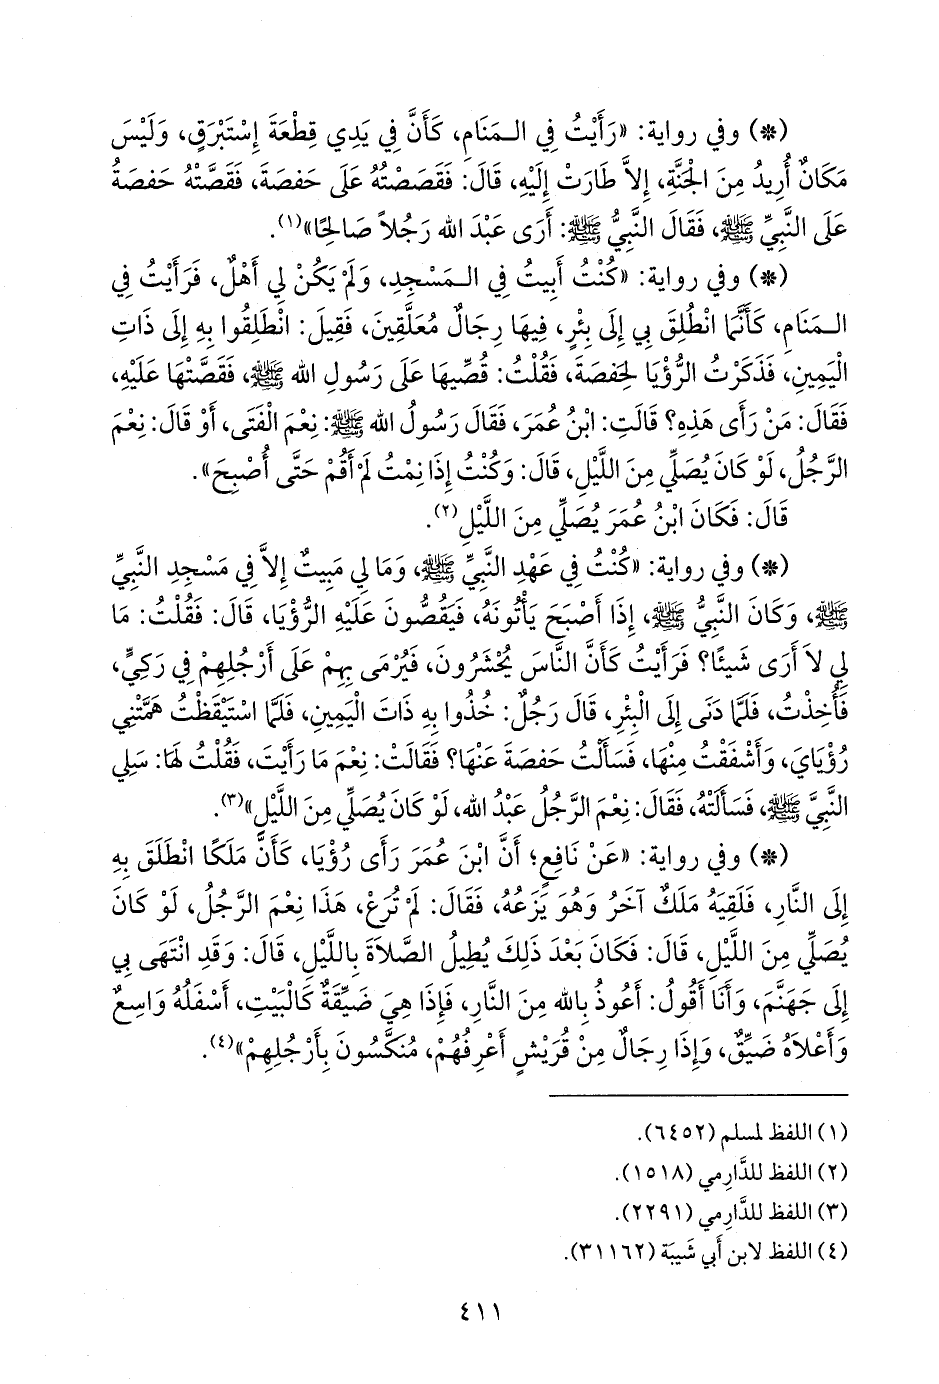 (*) وفي رواية: «رَأَيْتُ فِي الـمَنَامِ، كَأَنَّ فِي يَدِي قِطْعَةَ إِسْتَبْرَقٍ، وَلَيْسَ
مَكَانٌ أُرِيدُ مِنَ الْجَنَّةِ، إِلاَّ طَارَتْ إِلَيْهِ، قَالَ: فَقَصَصْتُهُ عَلَى حَفصَةَ، فَقَصَّتْهُ حَفصَةُ
عَلَى النَّبِيِّ ﷺ، فَقَالَ النَّبِيُّ ﷺ: أَرَى عَبْدَ الله رَجُلاً صَالِحًا»(١).
(*) وفي رواية: «كُنْتُ أَبِيتُ فِي الـمَسْجِدِ، وَلَمْ يَكُنْ لِي أَهْلٌ، فَرَأَيْتُ فِي
الـمَنَامِ، كَأَنَّمَا انْطُلِقَ بِي إِلَى بِئْرٍ، فِيهَا رِجَالٌ مُعَلَّقِينَ، فَقِيلَ: انْطَلِقُوا بِهِ إِلَى ذَاتِ
الْيَمِينِ، فَذَكَرْتُ الرُّؤْيَا لِحَفصَةَ، فَقُلْتُ: قُصِّيهَا عَلَى رَسُولِ الله ﷺ، فَقَصَّتْهَا عَلَيْهِ،
فَقَالَ: مَنْ رَأَى هَذِهِ؟ قَالَتِ: ابْنُ عُمَرَ، فَقَالَ رَسُولُ الله ﷺ: نِعْمَ الْفَتَى، أَوْ قَالَ: نِعْمَ
الرَّجُلُ، لَوْ كَانَ يُصَلِّي مِنَ اللَّيْلِ، قَالَ: وَكُنْتُ إِذَا نِمْتُ لَمْ أَقُمْ حَتَّى أُصْبِحَ».
قَالَ: فَكَانَ ابْنُ عُمَرَ يُصَلِّي مِنَ اللَّيْلِ(٢).
(*) وفي رواية: «كُنْتُ فِي عَهْدِ النَّبِيِّ ﷺ، وَمَا لِي مَبِيتٌ إِلاَّ فِي مَسْجِدِ النَّبِيِّ
ﷺ، وَكَانَ النَّبِيُّ ﷺ، إِذَا أَصْبَحَ يَأْتُونَهُ، فَيَقُصُّونَ عَلَيْهِ الرُّؤْيَا، قَالَ: فَقُلْتُ: مَا
لِي لاَ أَرَى شَيئًا؟ فَرَأَيْتُ كَأَنَّ النَّاسَ يُحْشَرُونَ، فَيُرْمَى بِهِمْ عَلَى أَرْجُلِهِمْ فِي رَكِيٍّ،
فَأُخِذْتُ، فَلَمَّا دَنَى إِلَى الْبِئْرِ، قَالَ رَجُلٌ: خُذُوا بِهِ ذَاتَ الْيَمِينِ، فَلَمَّا اسْتَيْقَظْتُ هَمَّتْنِي
رُؤْيَايَ، وَأَشْفَقْتُ مِنْهَا، فَسَأَلْتُ حَفصَةَ عَنْهَا؟ فَقَالَتْ: نِعْمَ مَا رَأَيْتَ، فَقُلْتُ لَهَا: سَلِي
النَّبِيَّ ﷺ، فَسَأَلَتْهُ، فَقَالَ: نِعْمَ الرَّجُلُ عَبْدُ الله، لَوْ كَانَ يُصَلِّي مِنَ اللَّيْلِ»(٣).
(*) وفي رواية: «عَنْ نَافِعٍ؛ أَنَّ ابْنَ عُمَرَ رَأَى رُؤْيَا، كَأَنَّ مَلَكًا انْطَلَقَ بِهِ
إِلَى النَّارِ، فَلَقِيَهُ مَلَكٌ آخَرُ وَهُوَ يَزَعُهُ، فَقَالَ: لَمْ تُرَعْ، هَذَا نِعْمَ الرَّجُلُ، لَوْ كَانَ
يُصَلِّي مِنَ اللَّيْلِ، قَالَ: فَكَانَ بَعْدَ ذَلِكَ يُطِيلُ الصَّلاَةَ بِاللَّيْلِ، قَالَ: وَقَدِ انْتَهَى بِي
إِلَى جَهَنَّمَ، وَأَنَا أَقُولُ: أَعُوذُ بِالله مِنَ النَّارِ، فَإِذَا هِيَ ضَيِّقَةٌ كَالْبَيْتِ، أَسْفَلُهُ وَاسِعٌ
وَأَعْلاَهُ ضَيِّقٌ، وَإِذَا رِجَالٌ مِنْ قُرَيْشٍ أَعْرِفُهُمْ، مُنَكَّسُونَ بِأَرْجُلِهِمْ»(٤).
(١) اللفظ لمسلم (٦٤٥٢).
(٢) اللفظ للدَّارِمي (١٥١٨).
(٣) اللفظ للدَّارِمي (٢٢٩١).
(٤) اللفظ لابن أَبي شَيبَة (٣١١٦٢).
٤١١